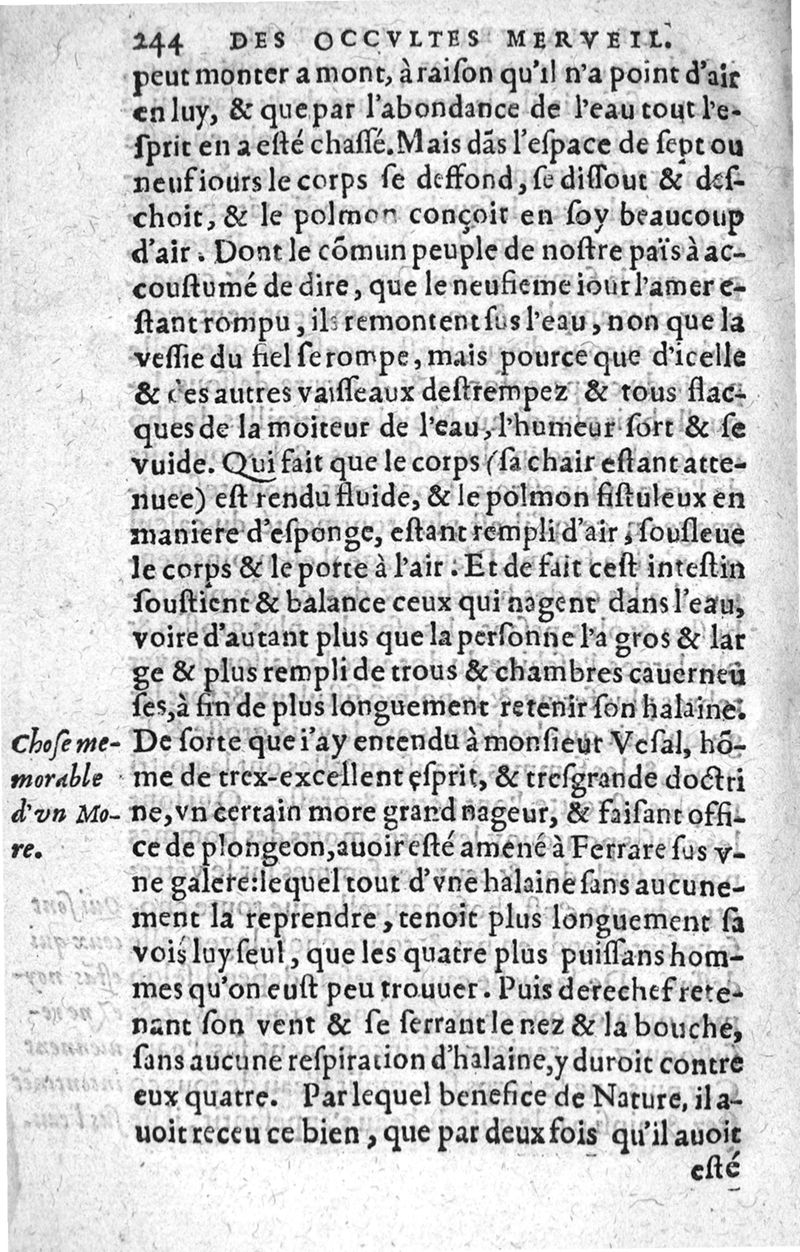 244 DES OCCVLTES MERVEIL.
peut monter a mont, à raiſon qu'il n'a point d'air
en luy, & que par l'abondance de l'eau tout l'e-
ſprit en a eſté chaſſé. Mais dãs l'eſpace de ſept ou
neuf iours le corps ſe deffond, ſe diſſout & deſ-
choit, & le polmon conçoit en ſoy beaucoup
d'air. Dont le cõmun peuple de noſtre païs à ac-
couſtumé de dire, que le neufieme iour l'amer e-
ſtant rompu, ils remontent ſus l'eau, non que la
veſſie du fiel ſe rompe, mais pource que d'icelle
& des autres vaiſſeaux deſtrempez & tous flac-
ques de la moiteur de l'eau, l'humeur ſort & ſe
vuide. Qui fait que le corps (ſa chair eſtant atte-
nuee) eſt rendu fluide, & le polmon fiſtuleux en
maniere d'eſponge, eſtant rempli d'air, ſouſleue
le corps & le porte à l'air. Et de fait ceſt inteſtin
ſouſtient & balance ceux qui nagent dans l'eau,
voire d'autant plus que la perſonne l'a gros & lar
ge & plus rempli de trous & chambres cauerneu
ſes, à fin de plus longuement retenir ſon halaine.
Choſe me-
morable
d'vn Mo-
re.
De ſorte que i'ay entendu à monſieur Veſal, hõ-
me de trex-excellent eſprit, & treſgrande doctri
ne, vn certain more grand nageur, & faiſant offi-
ce de plongeon, auoir eſté amené à Ferrare ſus v-
ne galere: lequel tout d'vne halaine ſans aucune-
ment la reprendre, tenoit plus longuement ſa
vois luy ſeul, que les quatre plus puiſſans hom-
mes qu'on euſt peu trouuer. Puis derechef rete-
nant ſon vent & ſe ſerrant le nez & la bouche,
ſans aucune reſpiration d'halaine, y duroit contre
eux quatre. Par lequel benefice de Nature, il a-
uoit receu ce bien, que par deux fois qu'il auoit
eſté